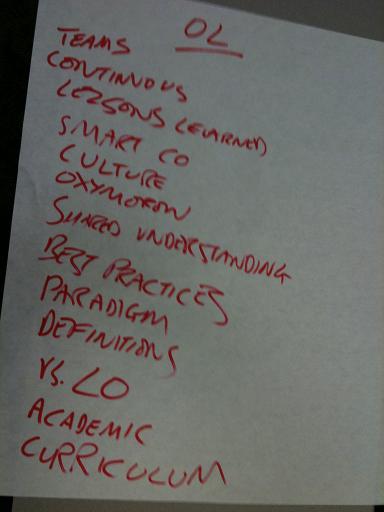 OL
TEAMS
CONTINUOUS
LESSONS LEARNED
SMART CO
CULTURE
OXYMORON
SHARED UNDERSTANDING
BEST PRACTICES
PARADIGM
DEFINITIONS
VS. LO
ACADEMIC
CURRICULUM